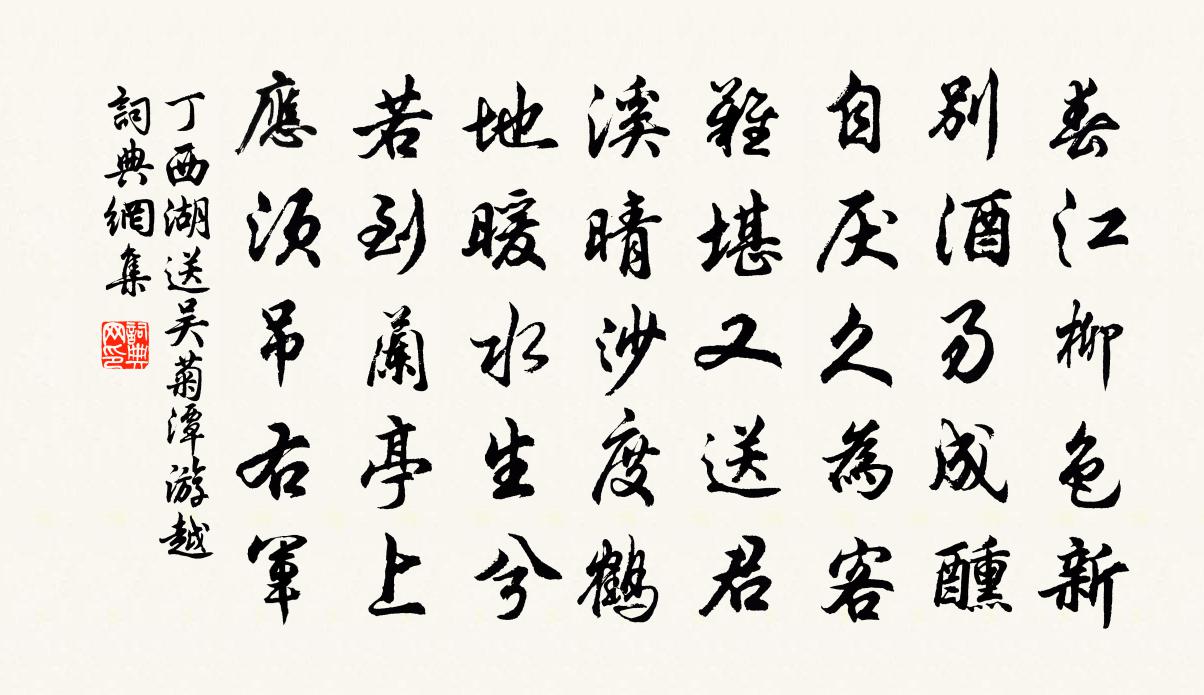 春江柳色新
別酒易成醺
自厌久為客
難堪又送君
溪晴沙度鶴
地暖水生兮
若到蘭亭上
應須吊右軍
丁西湖送吴菊潭游越
詞典網集
詞典网印